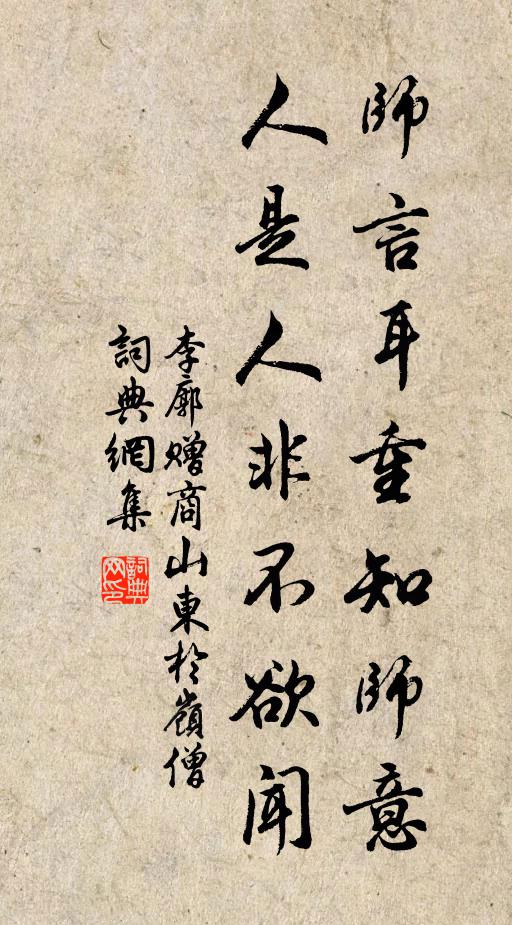 師言耳重知師意
人是人非不欲聞
李廓贈商山東於嶺僧
詞典網集
詞典网印